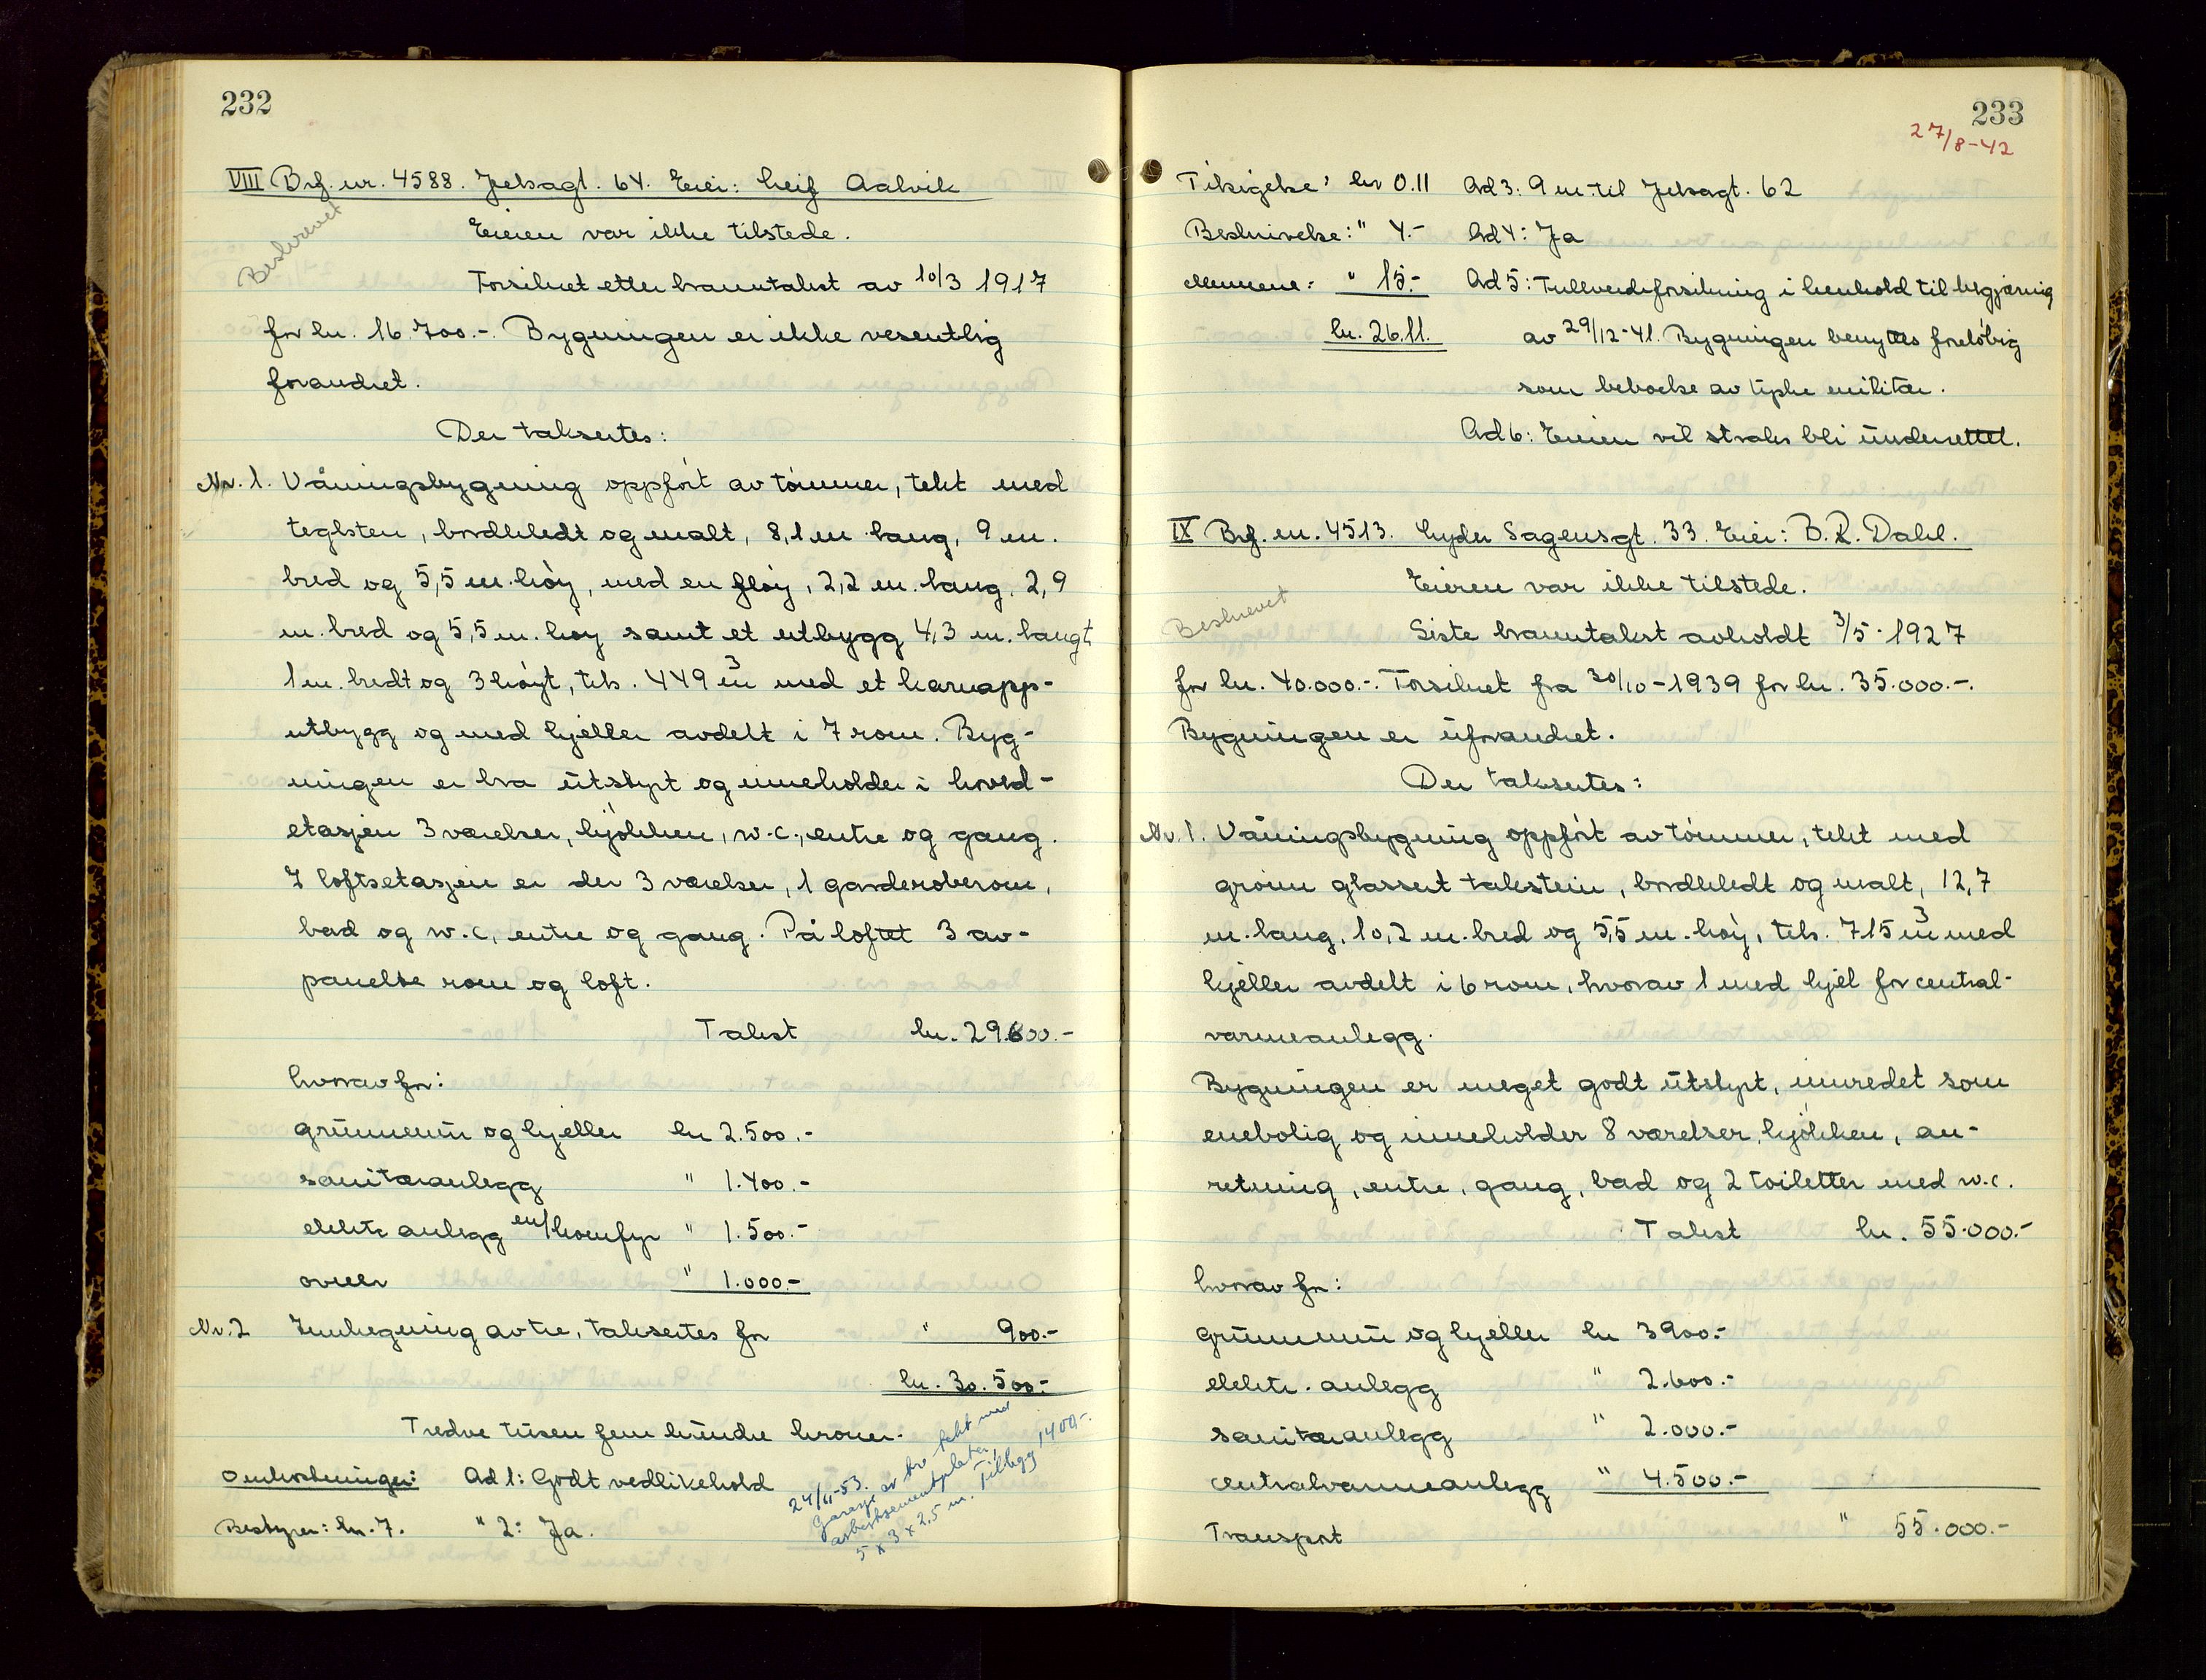 232
VIII Brf. nr. 4588. Jelsagt. 64. Eier: Leif Aalvik
Beskrevet
Eieren var ikke tilstede.
Forsikret etter branntakst av 10/3 1917
for kr. 16.700.-. Bygningen er ikke vesentlig
forandret.
Der taksertes:
Nr. 1. Våningsbygning oppført av tømmer, tekt med
teglsten, bordkledt og malt, 8,1 m lang, 9 m.
bred og 5,5 m. høy, med en fløy, 2,2 m. lang, 2,9
m. bred og 5,5 m. høy samt et utbygg 4,3 m. langt
1 m. bredt og 3 høyt, tils. 449 m³ med et karnapp-
utbygg og med kjeller avdelt i 7 rom. Byg-
ningen er bra utstyrt og inneholder i hoved-
etasjen 3 værelser, kjøkken, w.c., entre og gang.
I loftsetasjen er der 3 værelser, 1 garderoberom,
bad og w.c., entre og gang. På loftet 3 av-
panelte rom og loft.
Takst kr. 29.600.-
hvorav for:
grunnmur og kjeller kr 2.500.-
sanitæranlegg " 1.400.-
elektr anlegg m/komfyr " 1.500.-
ovner " 1.000.-
Nr. 2 Innhegning av tre, taksertes for " 900.-
kr. 30.500.-
Tredve tusen fem hundre kroner.
Omkostninger: Ad 1: Godt vedlikehold
Bestyrer: kr. 7. " 2: Ja.
24/11-53.
Garasje av tre tekt med
asbestsementplater,
5 x 3 x 2,5 m. Tillegg 1400.-
233
27/8-42
Tilsigelse: kr 0.11 Ad 3: 9 m. til Jelsagt. 62
Beskrivelse: " 4.- Ad 4: Ja
Mennene: " 15.- Ad 5: Fullverdiforsikring i henhold til begjæring
kr. 26.11. av 29/12-41. Bygningen benyttes foreløbig
som beboelse av tyske militær.
Ad 6: Eieren vil straks bli underrettet.
IX Brf. nr. 4513. Lyder Sagensgt. 33. Eier: B. R. Dahl.
Eieren var ikke tilstede.
Beskrevet
Siste branntakst avholdt 3/5-1927
for kr. 40.000.-. Forsikret fra 30/10-1939 for kr. 35.000.-.
Bygningen er uforandret.
Der taksertes:
Nr. 1. Våningsbygning oppført av tømmer, tekt med
grønn glassert takstein, bordkledt og malt, 12,7
m. lang, 10,2 m. bred og 5,5 m. høy, tils. 715 m³ med
kjeller avdelt i 6 rom, hvorav 1 med kjel for central-
varmeanlegg.
Bygningen er meget godt utstyrt, innredet som
enebolig og inneholder 8 værelser, kjøkken, an-
retning, entre, gang, bad og 2 toiletter med w.c.
Takst kr. 55.000.-
hvorav for:
grunnmur og kjeller kr 3900.-
elektr. anlegg " 2.600.-
sanitæranlegg " 2.000.-
centralvarmeanlegg " 4.500.-
Transport " 55.000.-